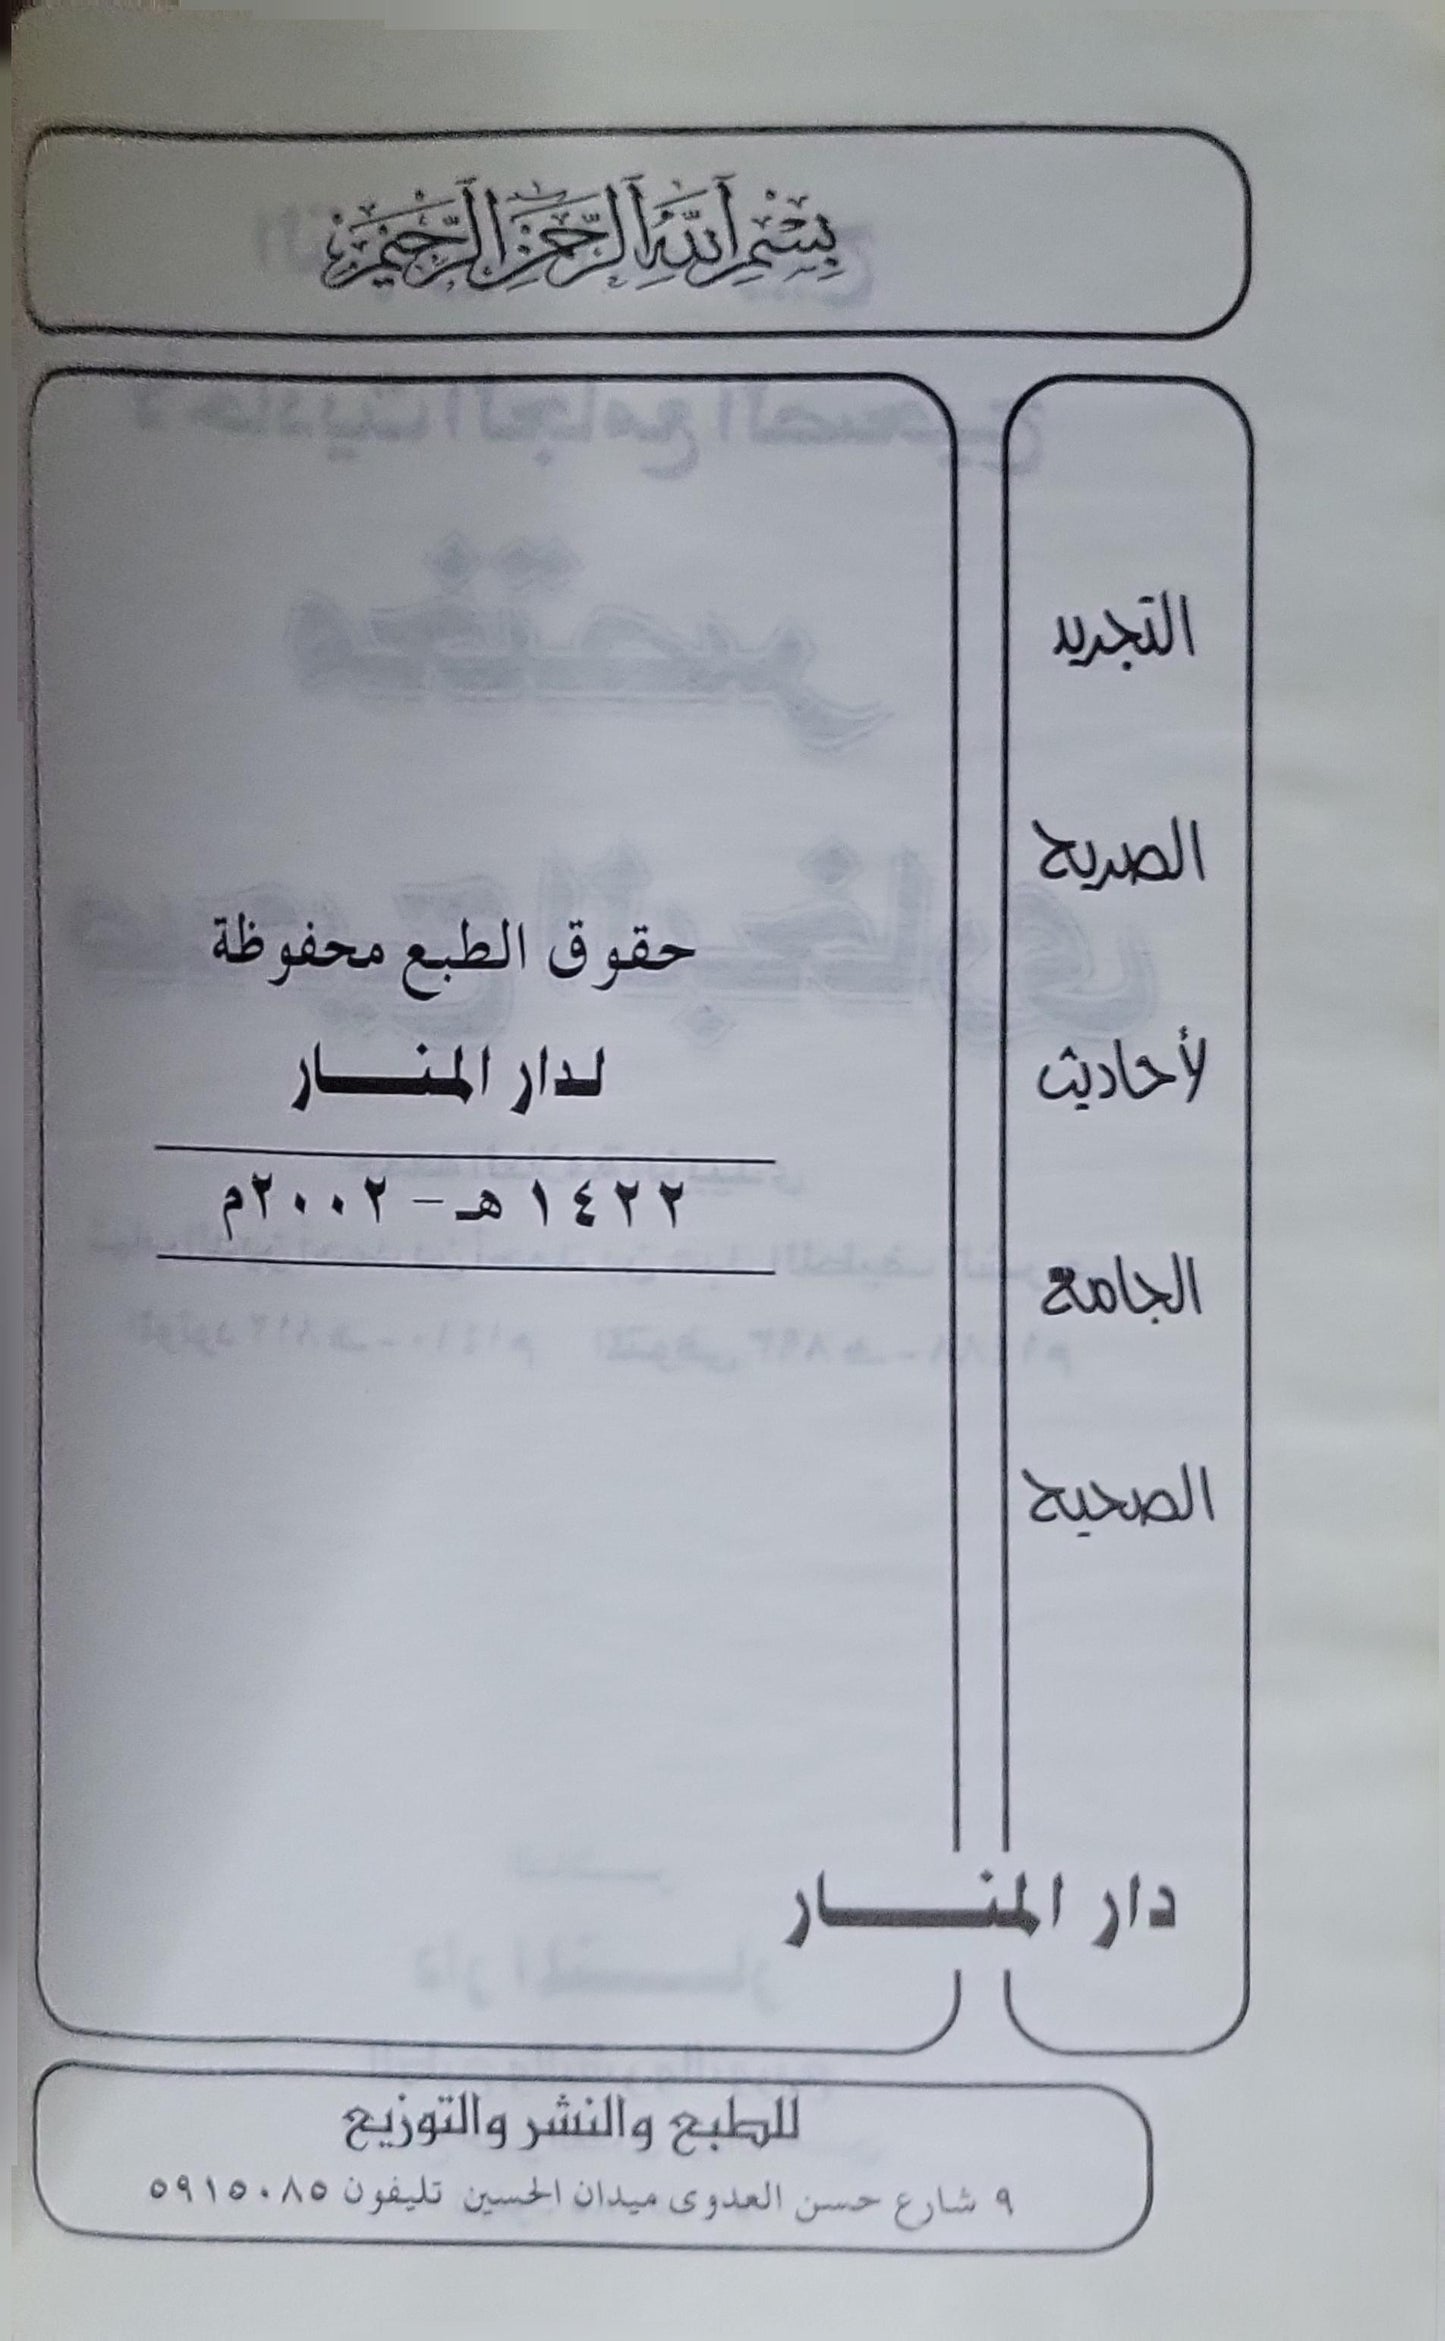 بسم الله الرحمن الرحيم
التجريد
الصريح
لأحاديث
الجامع
الصحيح
حقوق الطبع محفوظة
لدار المنـــار
١٤٢٢ هـ - ٢٠٠٢م
دار المنـــار
للطبع والنشر والتوزيع
٩ شارع حسن العدوى ميدان الحسين تليفون ٥٩١٥٠٨٥